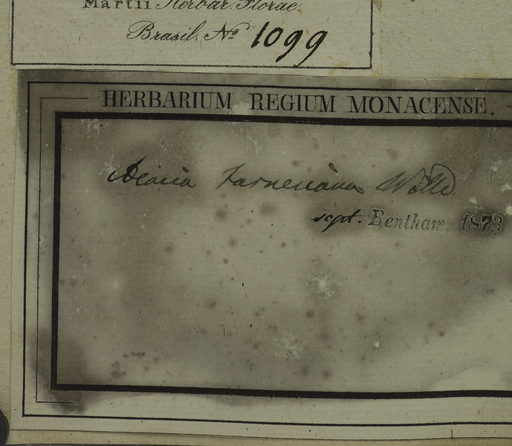 Martii Herbar. Florae
Brasil. Nº 1099
HERBARIUM REGIUM MONACENSE.
Acacia Farnesiana Willd
scpt. Bentham. 1873